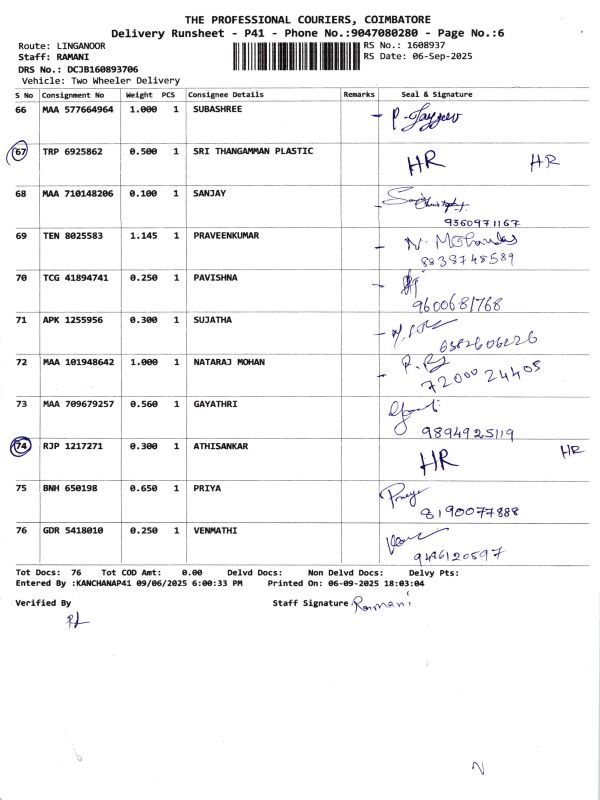 THE PROFESSIONAL COURIERS, COIMBATORE
Delivery Runsheet - P41 - Phone No.:9047080280 - Page No.:6
Route: LINGANOOR RS No.: 1608937
Staff: RAMANI RS Date: 06-Sep-2025
DRS No.: DCJB160893706
Vehicle: Two Wheeler Delivery
S No Consignment No Weight PCS Consignee Details Remarks Seal & Signature
66 MAA 577664964 1.000 1 SUBASHREE
67 TRP 6925862 0.500 1 SRI THANGAMMAN PLASTIC HR HR
68 MAA 710148206 0.100 1 SANJAY
9360971167
69 TEN 8025583 1.145 1 PRAVEENKUMAR
8838748589
70 TCG 41894741 0.250 1 PAVISHNA
9600681768
71 APK 1255956 0.300 1 SUJATHA
6382606226
72 MAA 101948642 1.000 1 NATARAJ MOHAN
7200024405
73 MAA 709679257 0.560 1 GAYATHRI
9894925119
74 RJP 1217271 0.300 1 ATHISANKAR HR HR
75 BNH 650198 0.650 1 PRIYA
8190077888
76 GDR 5418010 0.250 1 VENMATHI
9486120597
Tot Docs: 76 Tot COD Amt: 0.00 Delvd Docs: Non Delvd Docs: Delvy Pts:
Entered By :KANCHANAP41 09/06/2025 6:00:33 PM Printed On: 06-09-2025 18:03:04
Verified By Staff Signature Ramani